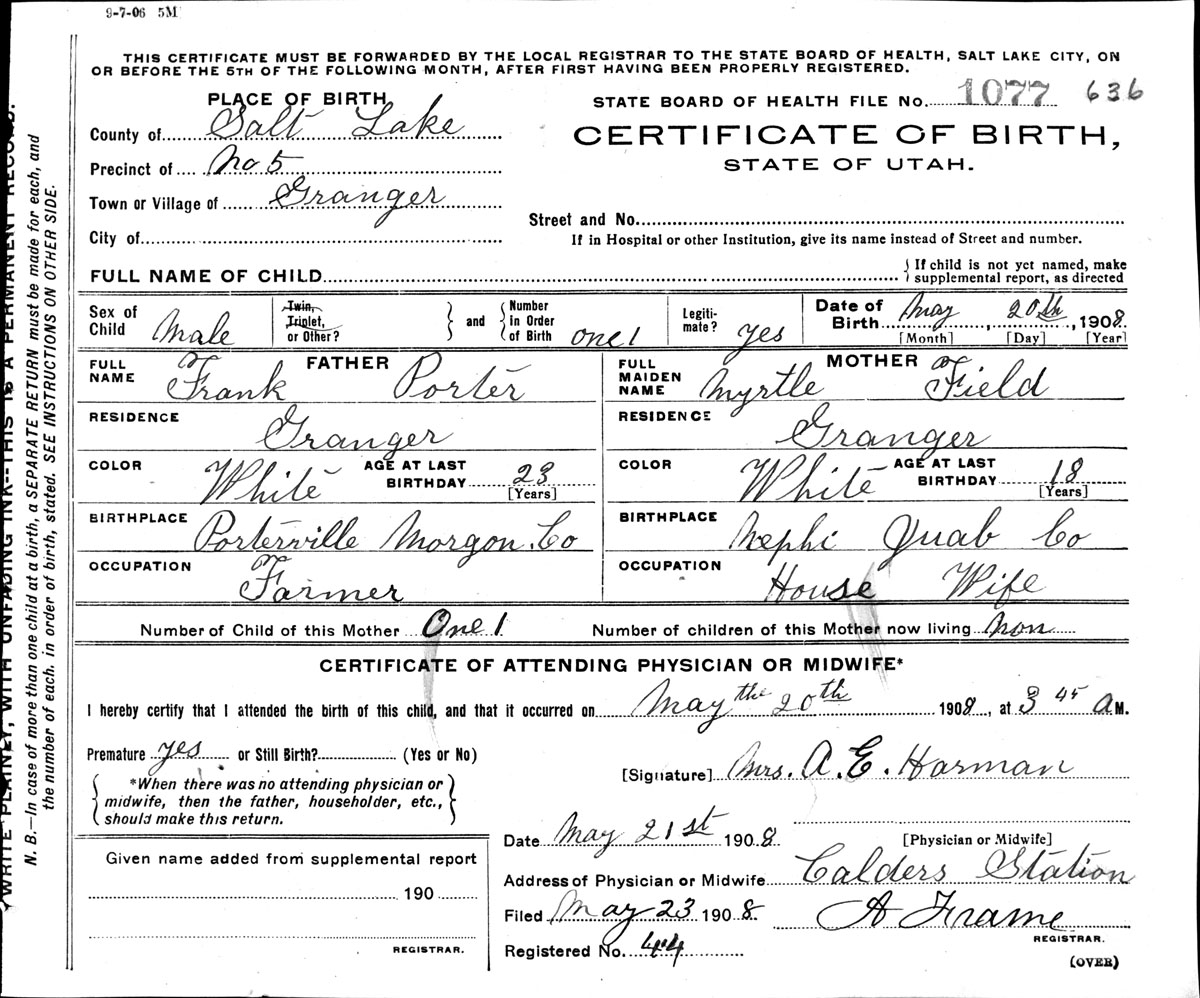 9-7-06 5M
THIS CERTIFICATE MUST BE FORWARDED BY THE LOCAL REGISTRAR TO THE STATE BOARD OF HEALTH, SALT LAKE CITY, ON
OR BEFORE THE 5TH OF THE FOLLOWING MONTH, AFTER FIRST HAVING BEEN PROPERLY REGISTERED.
PLACE OF BIRTH
STATE BOARD OF HEALTH FILE No. 1077 636
County of Salt Lake
CERTIFICATE OF BIRTH,
STATE OF UTAH.
Precinct of No 5
Town or Village of Granger
Street and No.
City of
If in Hospital or other Institution, give its name instead of Street and number.
FULL NAME OF CHILD
If child is not yet named, make
supplemental report, as directed
Sex of Child Male
Twin, Triplet, or Other?
and
Number in Order of Birth one 1
Legiti-mate? yes
Date of Birth May 20th, 1908
[Month] [Day] [Year]
FATHER
FULL NAME Frank Porter
MOTHER
FULL MAIDEN NAME Myrtle Field
RESIDENCE Granger
RESIDENCE Granger
COLOR White AGE AT LAST BIRTHDAY 23 [Years]
COLOR White AGE AT LAST BIRTHDAY 18 [Years]
BIRTHPLACE Porterville Morgon. Co
BIRTHPLACE Nephi Juab Co
OCCUPATION Farmer
OCCUPATION House Wife
Number of Child of this Mother One 1
Number of children of this Mother now living non
CERTIFICATE OF ATTENDING PHYSICIAN OR MIDWIFE*
I hereby certify that I attended the birth of this child, and that it occurred on May the 20th 1908, at 3 45 A M.
Premature yes or Still Birth? (Yes or No)
[Signature] Mrs. A. E. Harman
*When there was no attending physician or
midwife, then the father, householder, etc.,
should make this return.
Date May 21st 1908
[Physician or Midwife]
Given name added from supplemental report
190
REGISTRAR.
Address of Physician or Midwife Calders Station
Filed May 23 1908. A Frame
REGISTRAR.
Registered No. 44
(OVER)
WRITE PLAINLY, WITH UNFADING INK--THIS IS A PERMANENT RECORD.
N. B.—In case of more than one child at a birth, a SEPARATE RETURN must be made for each, and
the number of each. in order of birth, stated. SEE INSTRUCTIONS ON OTHER SIDE.